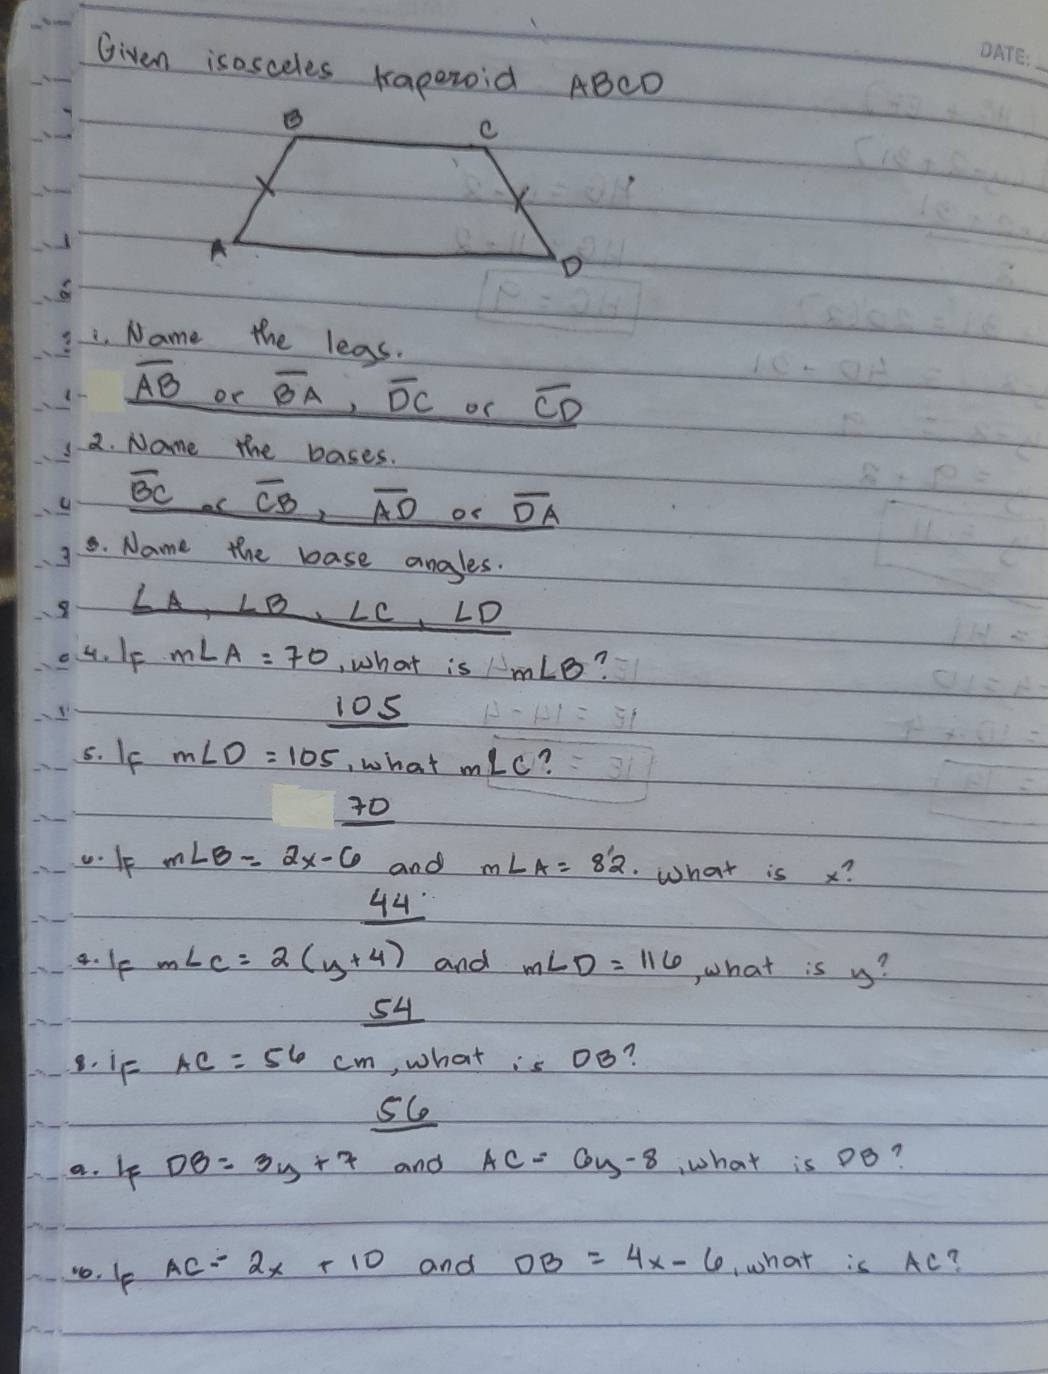 DATE:
Given isosceles trapezoid ABCD
B C
A D
1. Name the legs.
AB or BA, DC or CD
2. Name the bases.
BC or CB, AD or DA
3. Name the base angles.
∠A, ∠B, ∠C, ∠D
4. If m∠A = 70, what is m∠B?
105
5. If m∠D = 105, what m∠C?
70
6. If m∠B = 2x-6 and m∠A = 82. What is x?
44
7. If m∠C = 2(y+4) and m∠D = 116, what is y?
54
8. if AC = 56 cm, what is DB?
56
9. If DB = 3y + 7 and AC = 6y-8, what is DB?
10. If AC = 2x + 10 and DB = 4x - 6, what is AC?